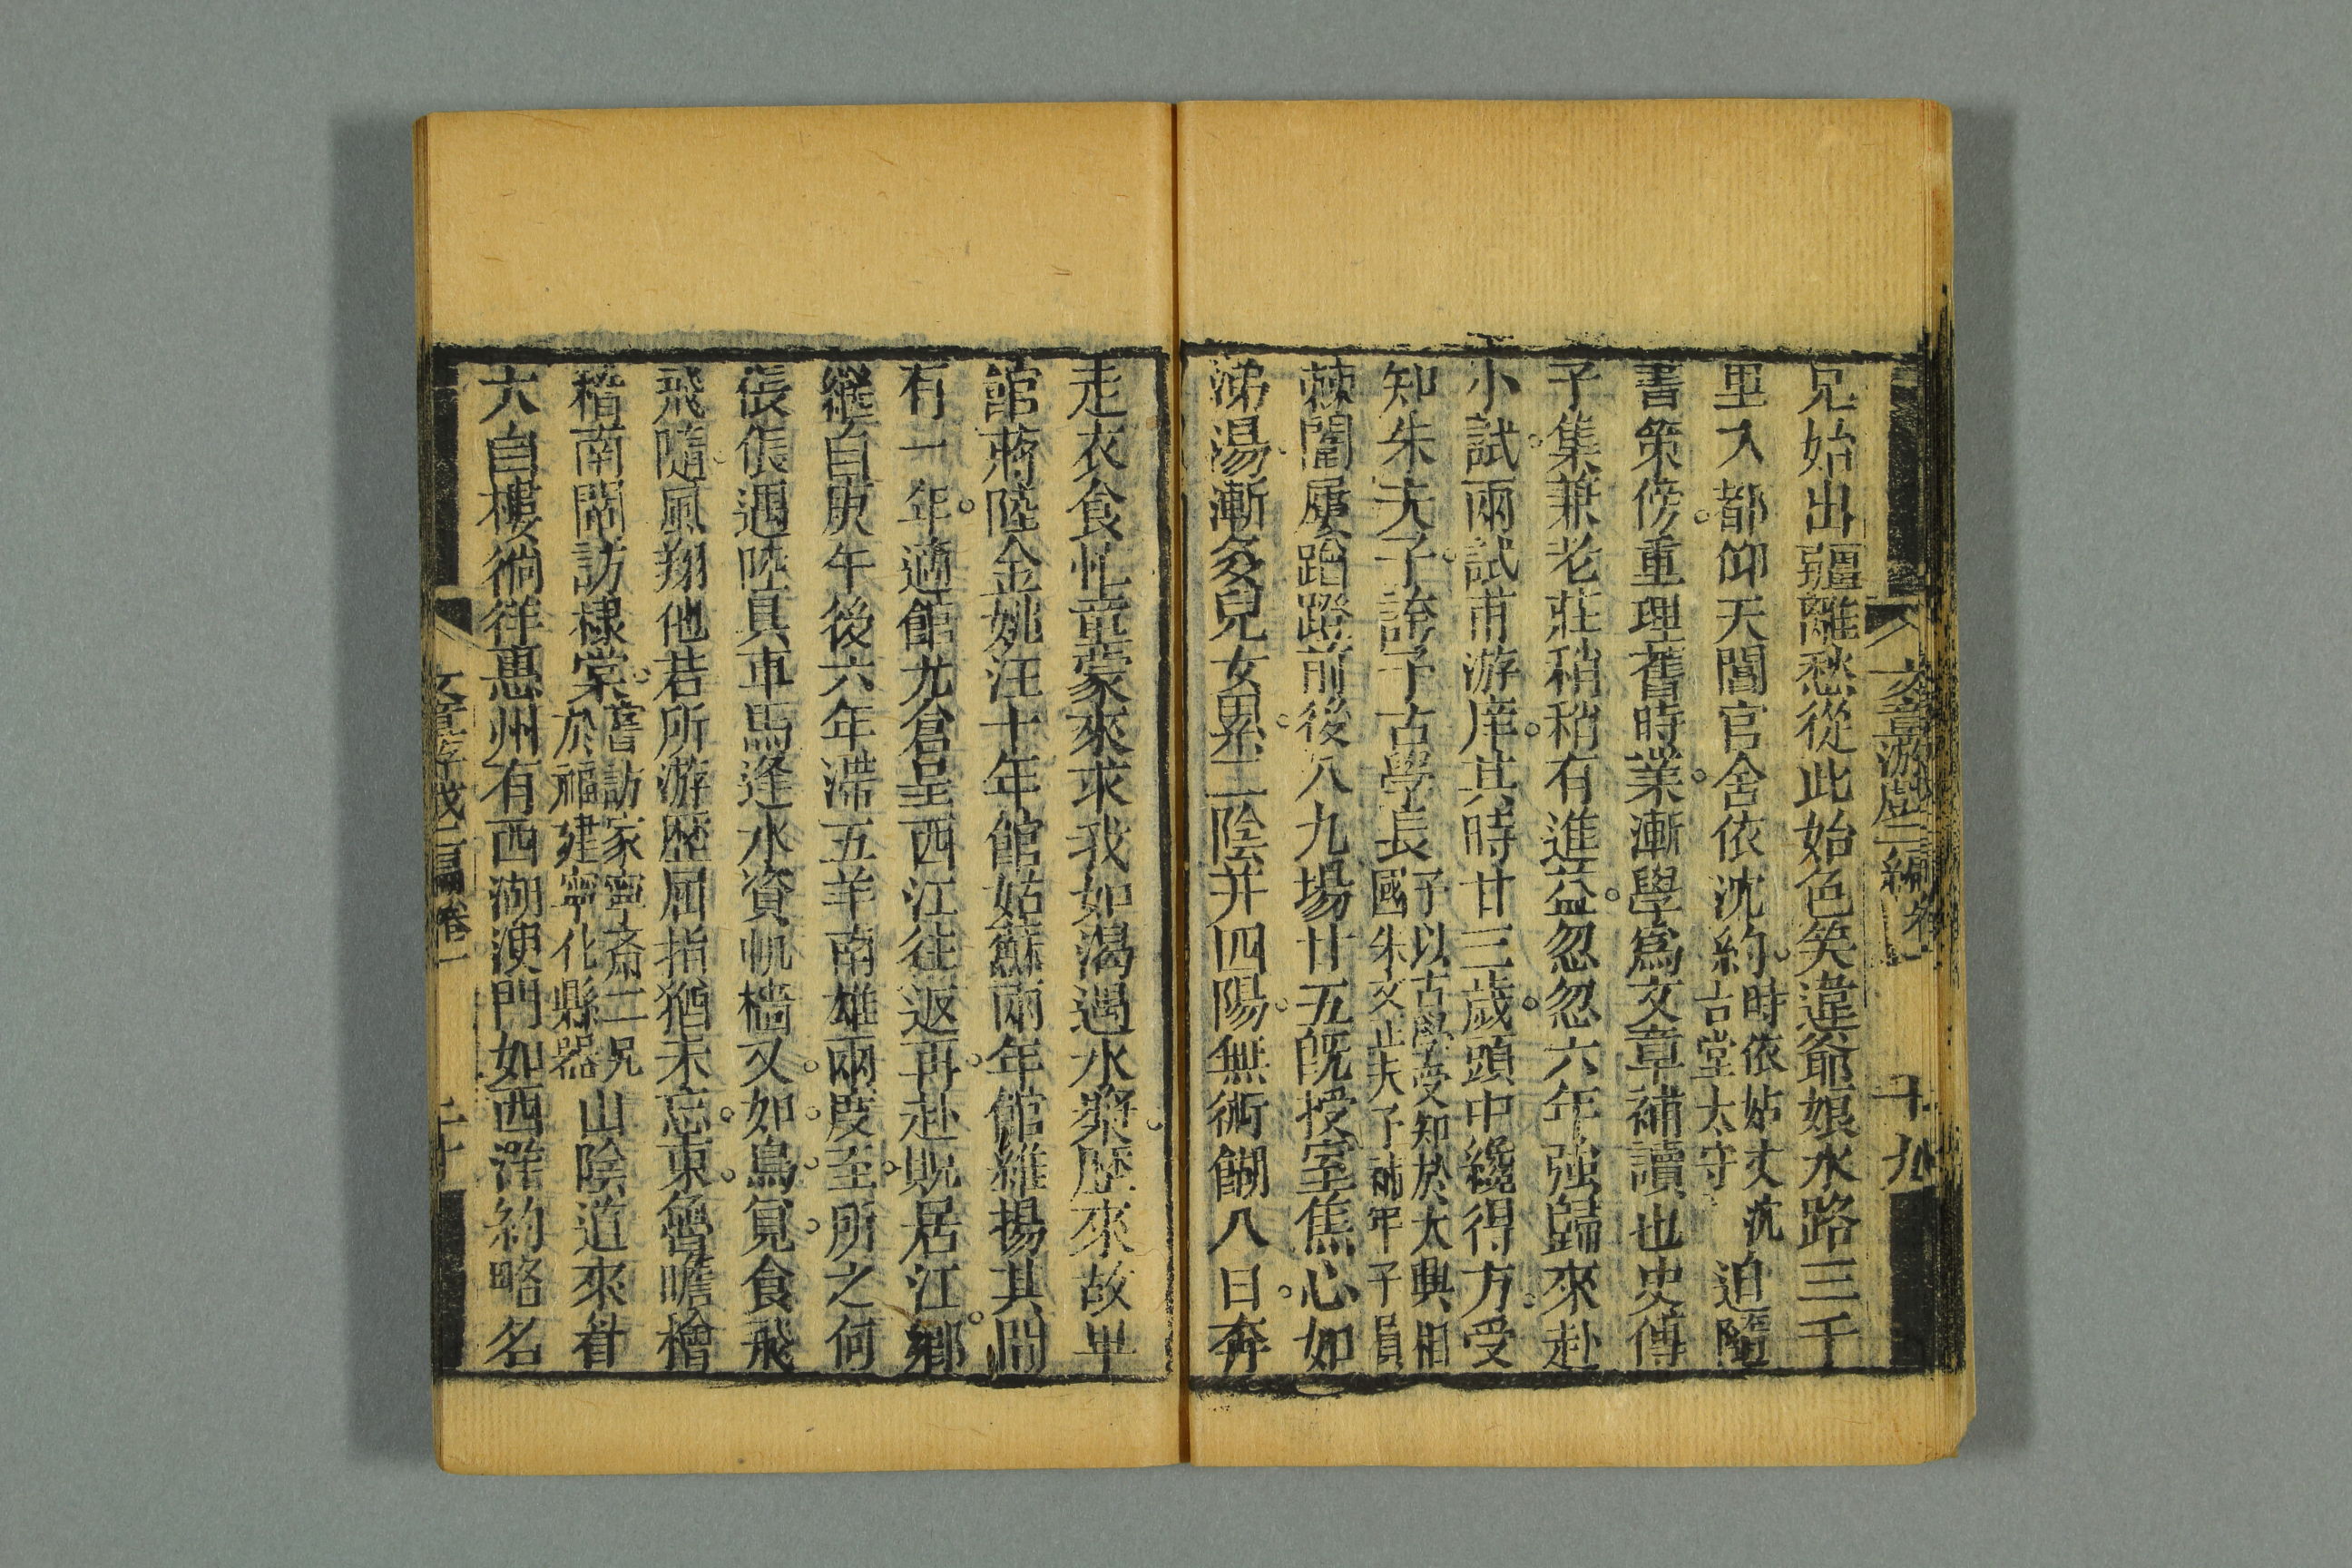 文章游戲二編 卷一 十九
兄始出疆離愁從此始色笑違爺娘水路三千
里入都仰天閶官舍依沈約時依姑丈沈古堂太守迫隨
書策傍重理舊時業漸學爲文章補讀也史傳
子集兼老莊稍稍有進益忽忽六年強歸來赴
小試兩試甫游庠其時廿三歲頭中纔得方受
知朱夫子許予古學長予以古學受知於大興相國朱文正夫子補年子員
棘闈屢蹭蹬前後八九場廿五旣授室焦心如
沸湯漸多兒女累二陰并四陽無術餬八口奔
走衣食忙童蒙來求我如渴遇水漿歷來故里
館蔣陸金姚汪十年館姑蘇兩年館維揚其間
有一年適館尤倉皇西江往返再赴貺居江鄉
縱自庚午後六年滯五羊南雄兩度至所之何
倀倀遇陸具車馬逢水資帆檣又如鳥覓食飛
飛隨風翔他若所游歷屈指猶未忘東魯瞻檜
楷南閩訪棣棠嘗訪家寧齋二兄於福建寧化縣署山陰道來看
六白樓徜徉惠州有西湖洩門如西洋約略名
文章游戲二編 卷一 二十